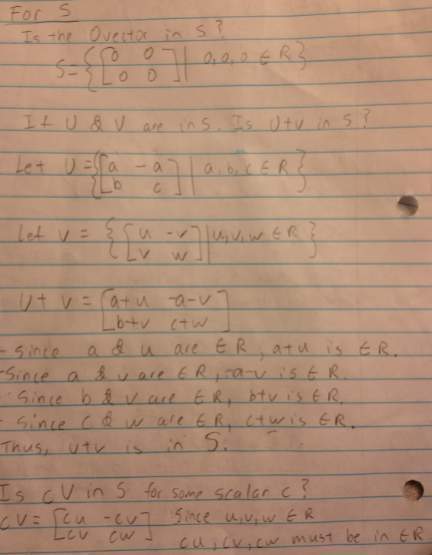 For S
Is the 0vector in S?
S={[0 0 0 0] | 0,0,0 ∈ R}
If U & V are in S. Is U+V in S?
Let U={[a -a b c] | a,b,c ∈ R}
Let V = {[u -v v w] | u,v,w ∈ R}
U + V = [a+u -a-v b+v c+w]
- Since a & u are ∈ R, a+u is ∈ R.
- Since a & v are ∈ R, -a-v is ∈ R.
- Since b & v are ∈ R, b+v is ∈ R.
- Since c & w are ∈ R, c+w is ∈ R.
Thus, U+V is in S.
Is cV in S for some scalar c?
cV = [cu -cv cv cw] Since u,v,w ∈ R
cu, cv, cw must be in ∈ R